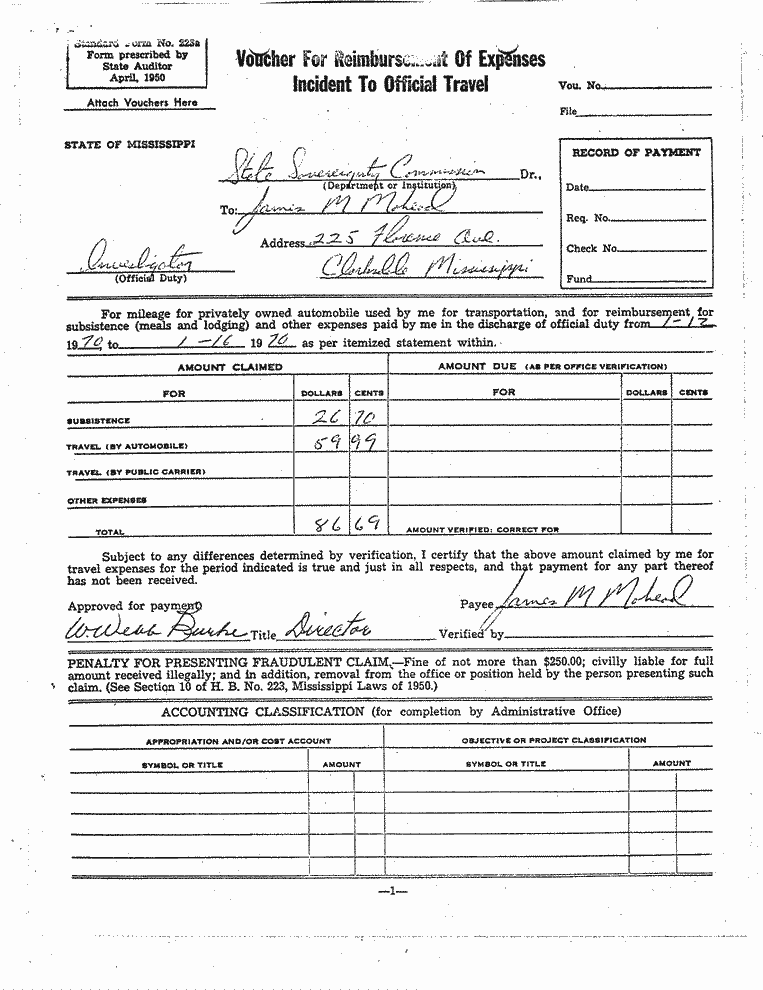 Standard Form No. 225a
Form prescribed by
State Auditor
April, 1950
Attach Vouchers Here
Voucher For Reimbursement Of Expenses
Incident To Official Travel
Vou. No.
File
STATE OF MISSISSIPPI
State Sovereignty Commission Dr.,
(Department or Institution)
To: James M Mohead
Address 225 Florence Ave.
Clarksdale Mississippi
Investigator
(Official Duty)
RECORD OF PAYMENT
Date
Req. No.
Check No.
Fund
For mileage for privately owned automobile used by me for transportation, and for reimbursement for
subsistence (meals and lodging) and other expenses paid by me in the discharge of official duty from 1-12
1970, to 1-16 1970 as per itemized statement within.
AMOUNT CLAIMED AMOUNT DUE (AS PER OFFICE VERIFICATION)
FOR DOLLARS CENTS FOR DOLLARS CENTS
SUBSISTENCE 26 70
TRAVEL (BY AUTOMOBILE) 59 99
TRAVEL (BY PUBLIC CARRIER)
OTHER EXPENSES
TOTAL 86 69 AMOUNT VERIFIED: CORRECT FOR
Subject to any differences determined by verification, I certify that the above amount claimed by me for
travel expenses for the period indicated is true and just in all respects, and that payment for any part thereof
has not been received.
Approved for payment Payee James M Mohead
W. Webb Burke Title Director Verified by
PENALTY FOR PRESENTING FRAUDULENT CLAIM.—Fine of not more than $250.00; civilly liable for full
amount received illegally; and in addition, removal from the office or position held by the person presenting such
claim. (See Section 10 of H. B. No. 223, Mississippi Laws of 1950.)
ACCOUNTING CLASSIFICATION (for completion by Administrative Office)
APPROPRIATION AND/OR COST ACCOUNT OBJECTIVE OR PROJECT CLASSIFICATION
SYMBOL OR TITLE AMOUNT SYMBOL OR TITLE AMOUNT
—1—